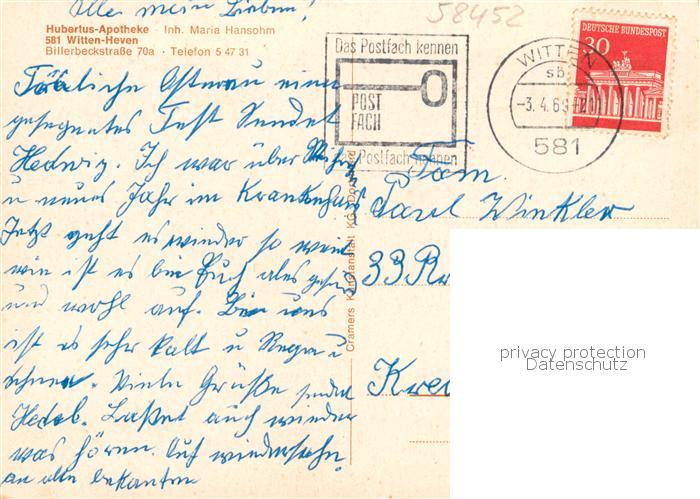 Alle mein Lieben!
58452
Hubertus-Apotheke · Inh. Maria Hansohm
581 Witten-Heven
Billerbeckstraße 70a · Telefon 5 47 31
Fröhliche Ostern u einen
gesegnetes Fest Sendet
Hedwig. Ich war über Weihn.
u neues Jahr im Krankenhaus
Jetzt geht es wieder so weit
wie ist es bei Euch alles gesund
und wohl auf. Bei uns
ist es sehr kalt u Regen u
schnee. Viele Grüße sendet
Laßet auch wieder
was hören. Auf wiedersehn
an alle bekannten
Das Postfach kennen
POST
FACH
Das Postfach nehmen
WITTEN
sb
-3. 4. 69
581
30
DEUTSCHE BUNDESPOST
Cramers Kunstanstalt KG, Dortmund
Fam.
Paul Winkler
33
privacy protection
Datenschutz